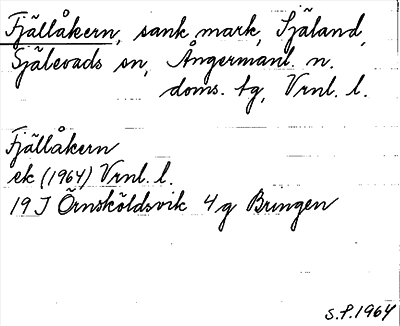 Fjällåkern, sank mark, Själand,
Själevads sn, Ångermanl. n.
doms. tg, Vrnl. l.
Fjällåkern
ek (1964) Vrnl. l.
19 J Örnsköldsvik 4g Bringen
S.P. 1964